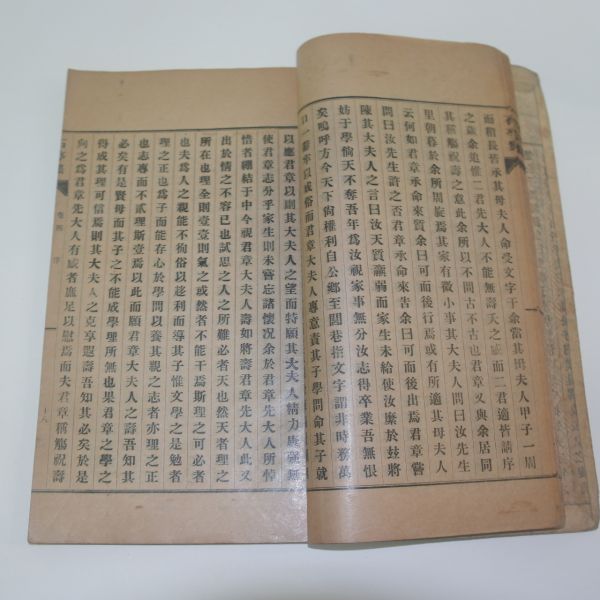 而稍長皆承其母夫人命受文字于余當其母夫人甲子一周
之歲余追惟二君先大人不能無壽夭之感而二君適皆請序
其稱觴祝壽之意此余所以不問古不古也君章又與余居同
里朝暮於余所周旋焉其家有微小事其大夫人問曰汝先生
云何如君章承命來質余曰可而後行焉或有所適其母夫人
問曰汝先生許之否君章承命來告余曰可而後出焉君章嘗
陳其大夫人之言曰汝天質羸弱而家生未給使汝縻於玆將
妨于學倘天不奪吾年爲汝視家事無分汝志得卒業吾無恨
矣嗚呼方今天下尙權利自公鄕至閭巷指文字謂非時務萬
口一 以成俗而君章大夫人專意責其子學問命其子就
以應君章以則其大夫人之望而特願其大夫人精力康强無
使君章志分乎家生則未嘗忘諸懷况余於君章先大人所悼
惜者繃結于中今視君章大夫人壽如將壽君章先大人此又
出於情之不容已也試思之人之所難必者天也然天者理之
所在也理全則壹壹則氣之或然者不能干焉斯理之可必者
也夫爲人之親能不徇俗以趍利而導其子惟文學之是勉者
理之正也爲其子而能存心於學問以養其親之志者亦理之正
也志專而不貳理斯壹焉以此而願君章大夫人之壽吾知其
必矣有是賢母而其子之不能成學理所無也果君章之學之
得成其理可信焉則其大夫人之克享遐壽吾知其必矣於是
向之爲君章先大人有慽者應足以慰焉而夫君章稱觴祝壽
卷四 序
十八